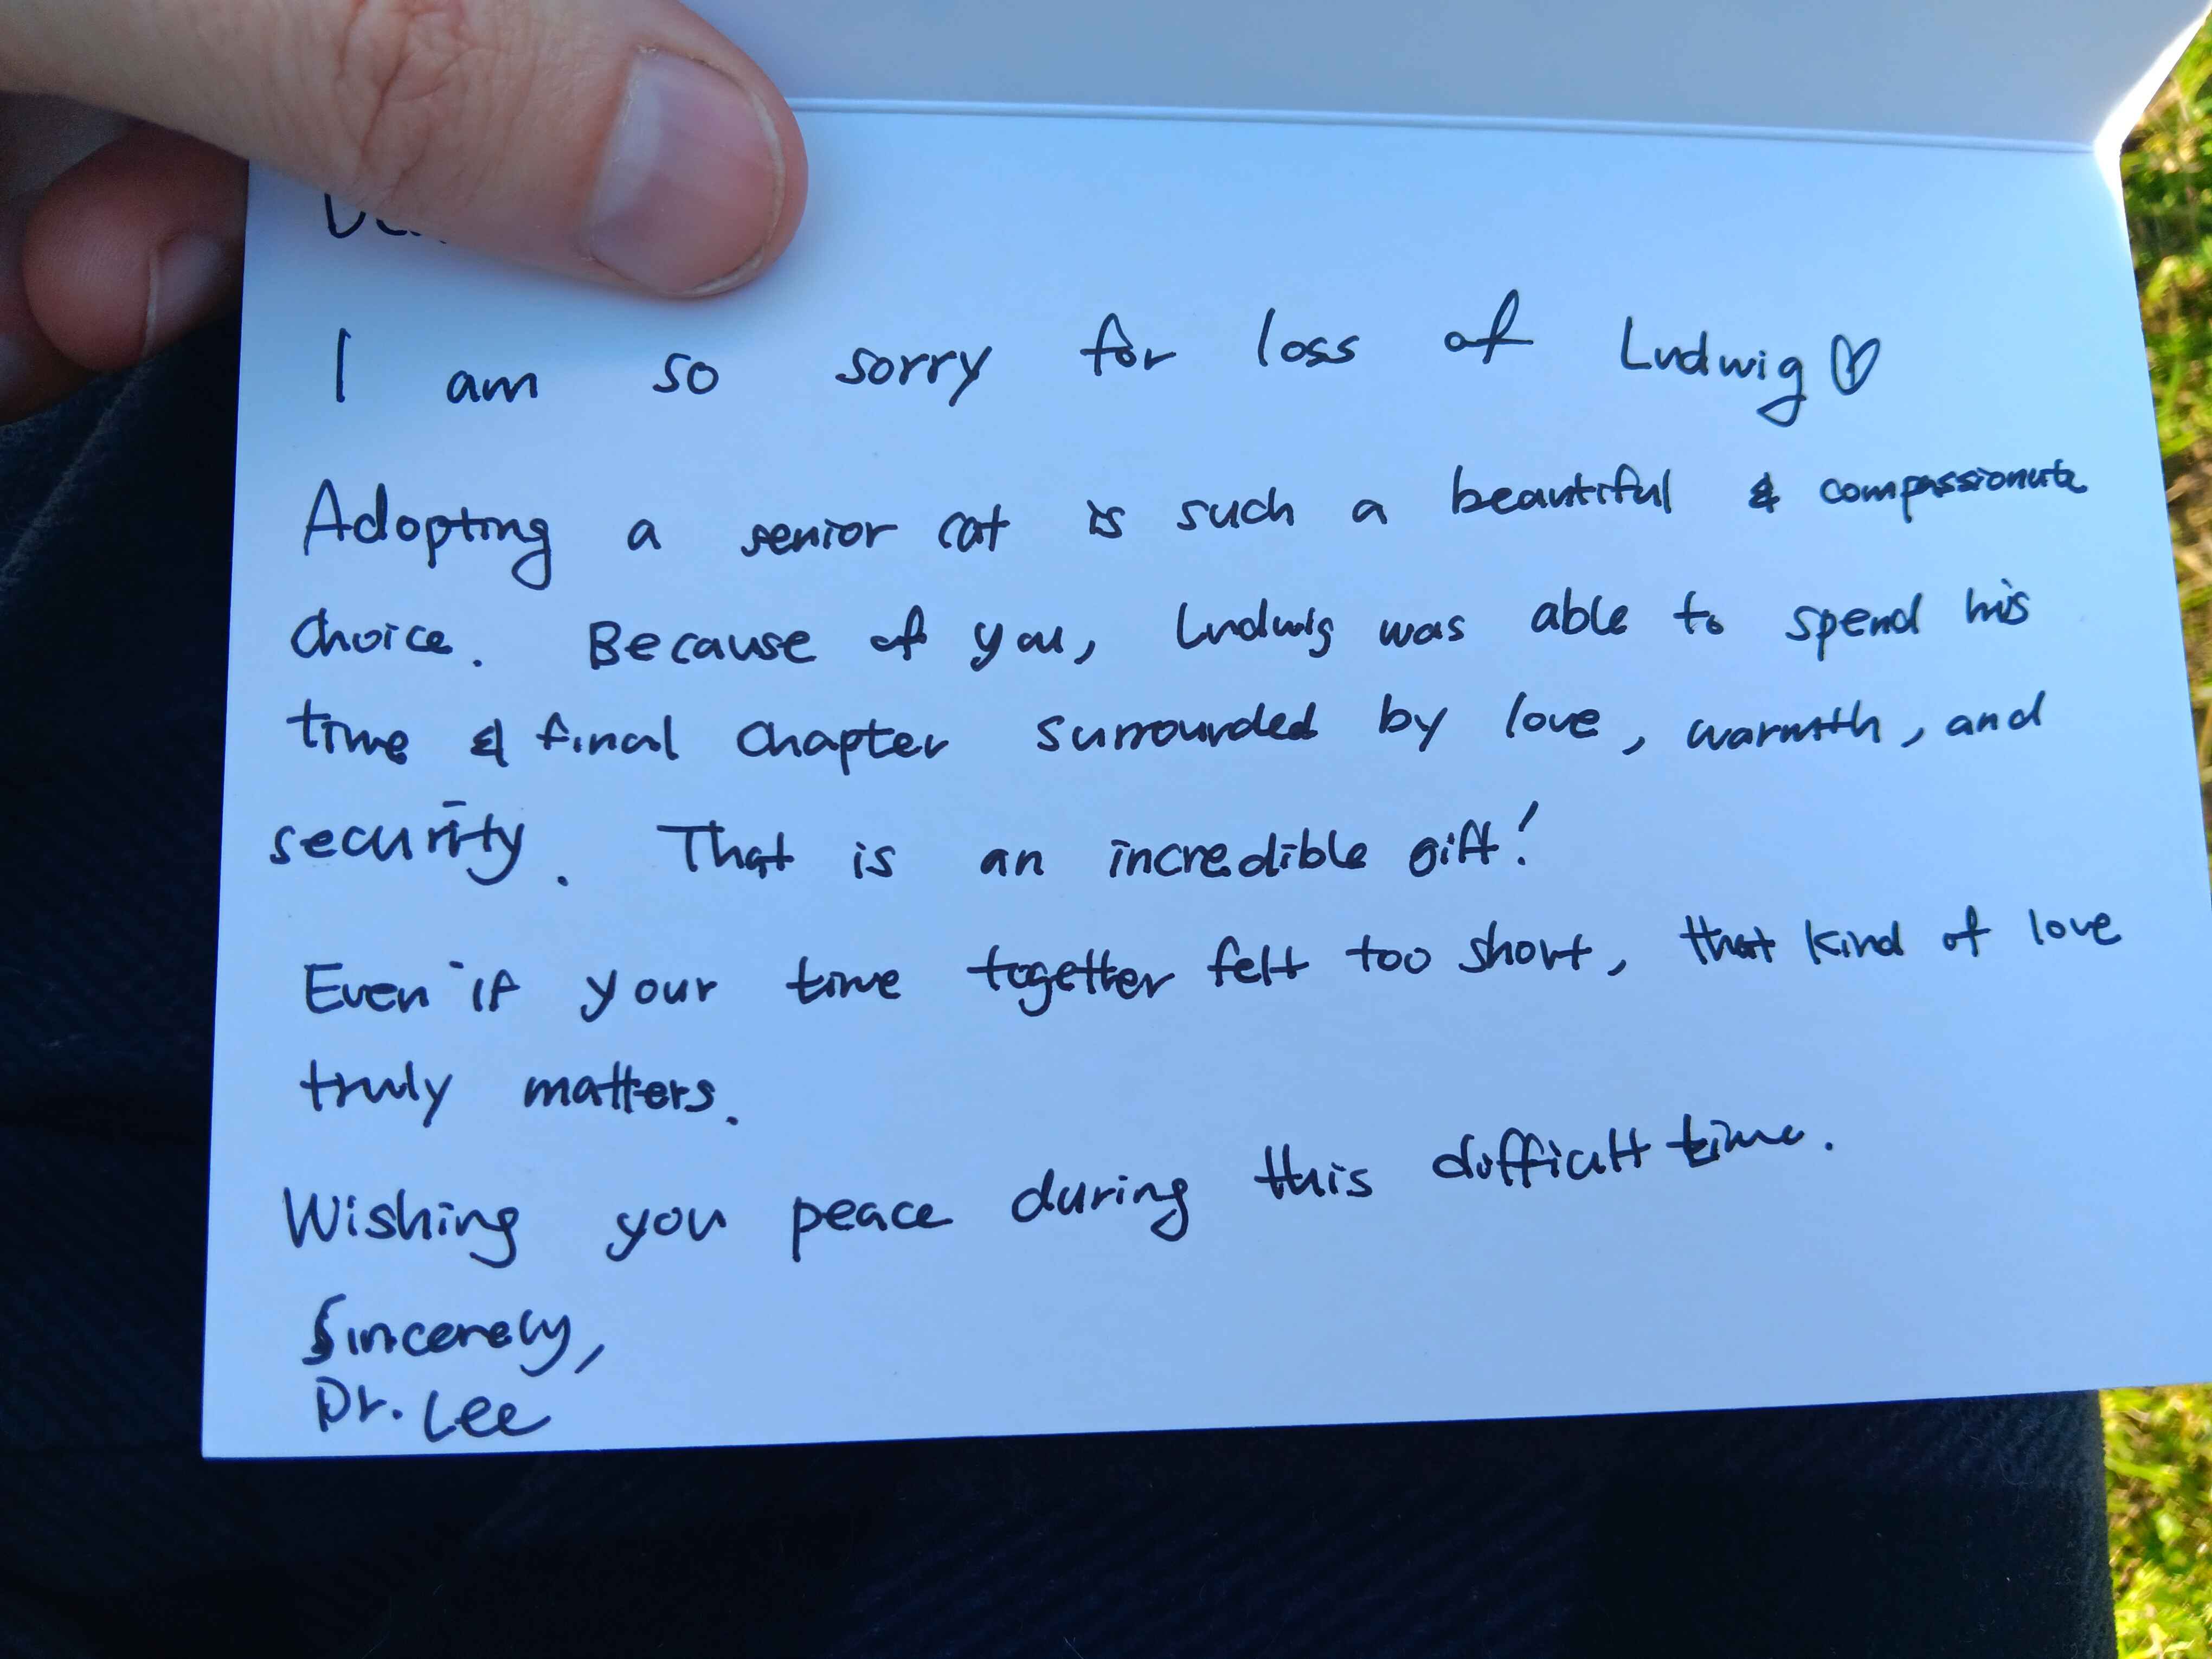 I am so sorry for loss of Ludwig ♡
Adopting a senior cat is such a beautiful & compassionate
choice. Because of you, Ludwig was able to spend his
time & final chapter surrounded by love, warmth, and
security. That is an incredible gift!
Even if your time together felt too short, that kind of love
truly matters.
Wishing you peace during this difficult time.
Sincerely,
Dr. Lee